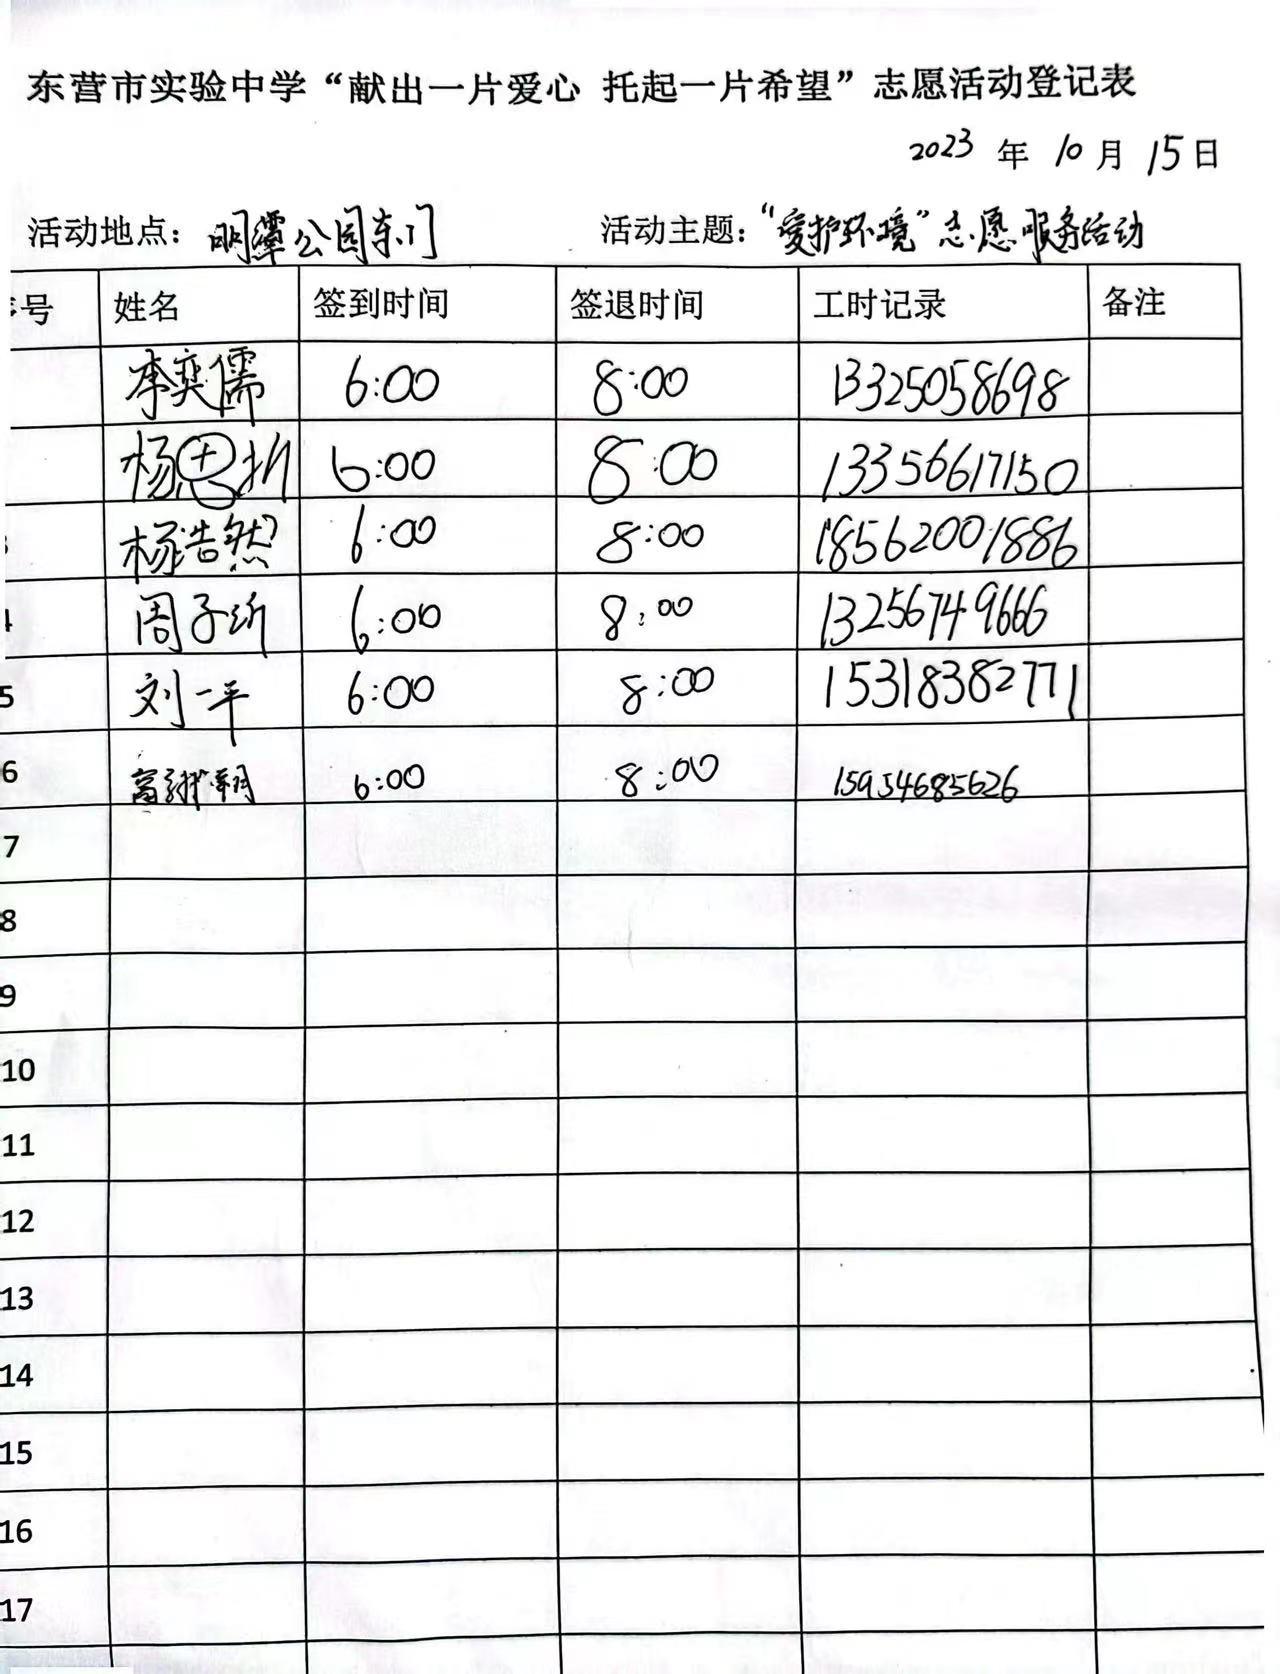 东营市实验中学“献出一片爱心 托起一片希望”志愿活动登记表
2023 年 10 月 15 日
活动地点：明潭公园东门 活动主题：“爱护环境”志愿服务活动
号 姓名 签到时间 签退时间 工时记录 备注
李奕儒 6:00 8:00 13325058698
杨思折 6:00 8:00 13356617150
杨浩然 6:00 8:00 18562001886
周子沂 6:00 8:00 13256749666
5 刘一平 6:00 8:00 15318382771
6 6:00 8:00 15954685626
7
8
9
10
11
12
13
14
15
16
17